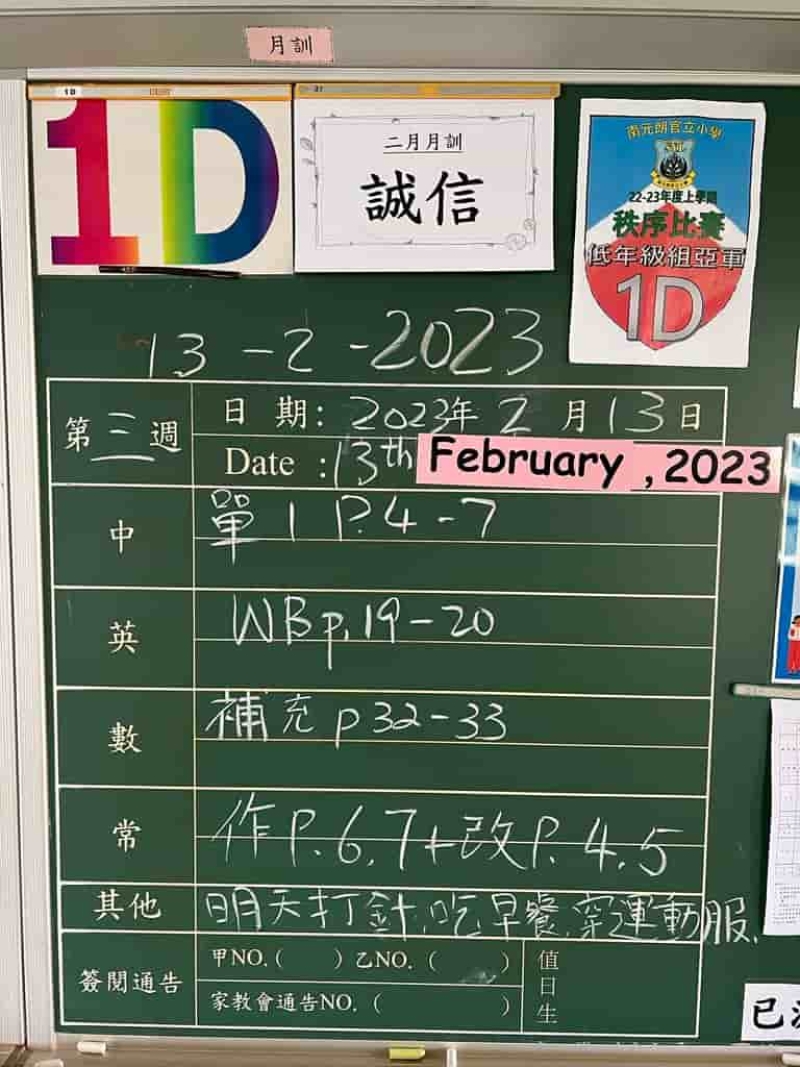 月訓
1D
二月月訓
誠信
南元朗官立小學
22-23年度上學期
秩序比賽
低年級組亞軍
1D
13-2-2023
第三週
日期：2023年2月13日
Date :13th February ,2023
中
單1 P.4-7
英
WB p.19-20
數
補充 p32-33
常
作P.6,7+改P.4,5
其他
明天打針,吃早餐,穿運動服.
簽閱通告
甲NO.( ) 乙NO.( )
家教會通告NO.( )
值日生